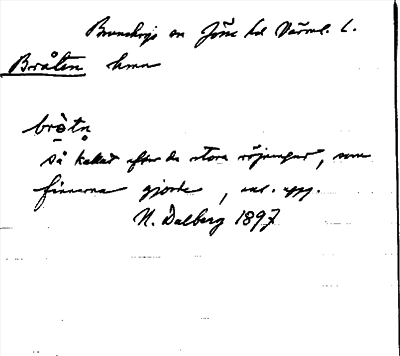 Brunskogs sn Jösse hd Värml. l.
Bråten hmn
bråtn
så kallad efter de stora röjningar, som
finnarna gjorde, enl. uppg.
N. Dalberg 1897